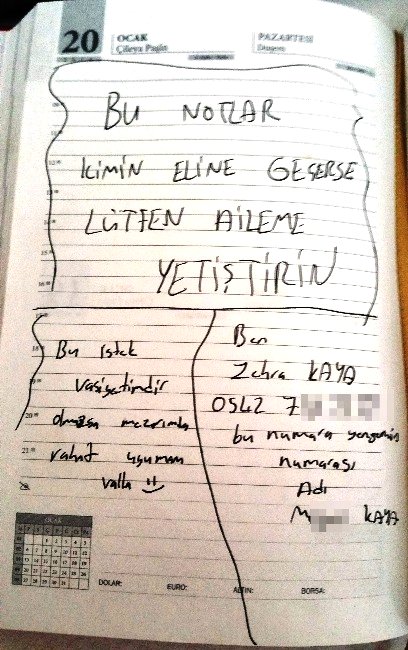 20
OCAK
PAZARTESİ
BU NOTLAR
KİMİN ELİNE GEÇERSE
LÜTFEN AİLEME
YETİŞTİRİN
Bu istek
vasiyetimdir
olmazsa mezarımda
rahat uyumam
valla
Ben
Zehra KAYA
0542 7
bu numara yengemin
numarası
Adı
M KAYA
OCAK
DOLAR:
EURO:
ALTIN:
BORSA: